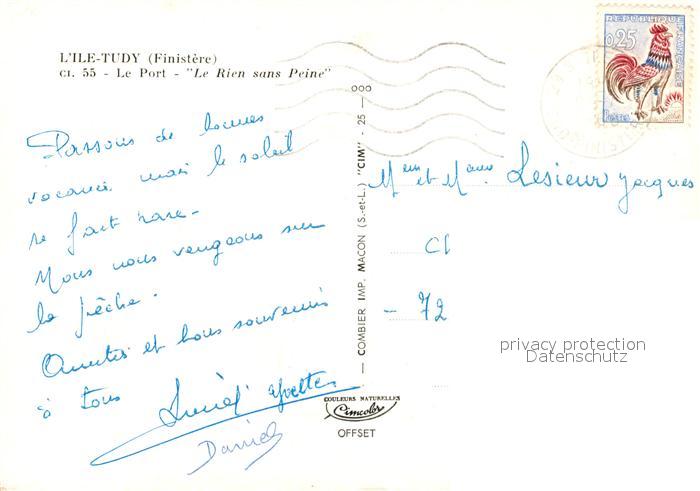 L'ILE-TUDY (Finistère)
CI. 55 - Le Port - "Le Rien sans Peine"
Passons de bonnes
vacances mais le soleil
se fait rare -
Nous nous vengeons sur
la pêche.
Amitiés et bons souvenirs
à tous
Yvette
Daniel
COMBIER IMP. MACON (S.-et-L.) "CIM" - 25 -
ooo
REPUBLIQUE FRANÇAISE
0,25
Postes
Mr et Mme Lesieur Jacques
- 72
privacy protection
Datenschutz
COULEURS NATURELLES
Cimcolor
OFFSET